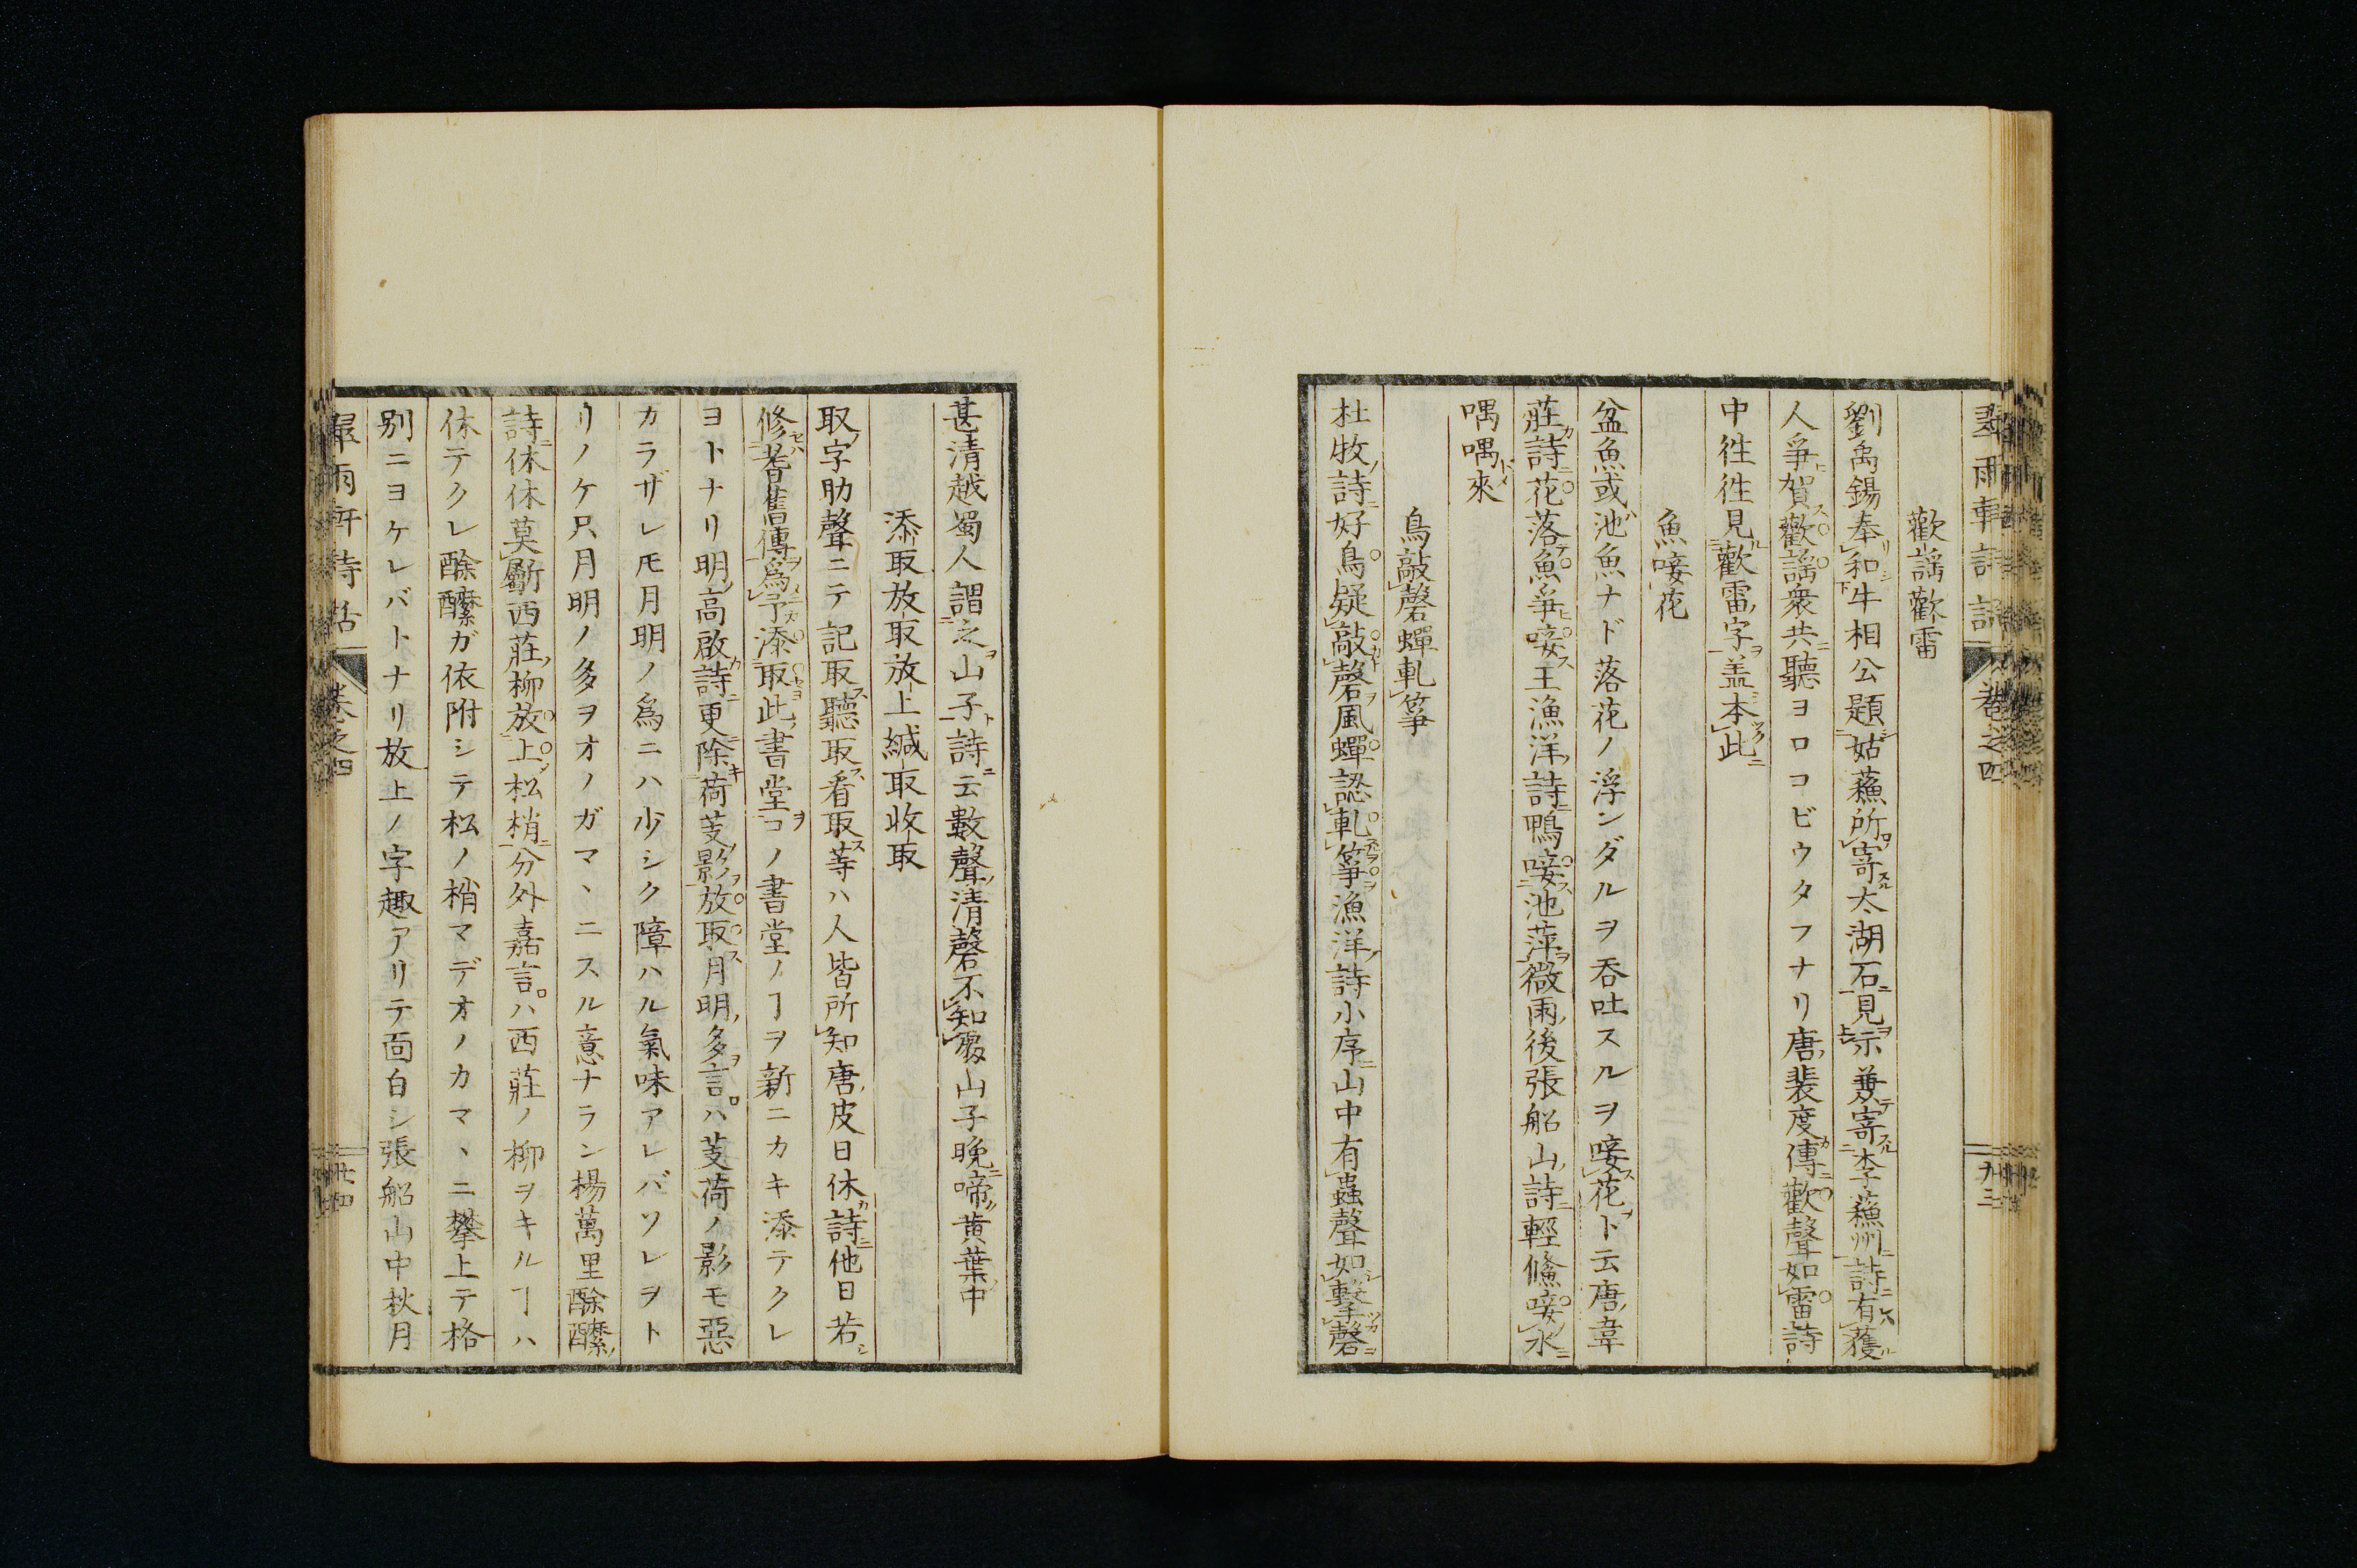 歡謡歡雷
劉禹錫奉和牛相公題姑蘓所寄太湖石見示兼寄李蘓州詩有獲
人爭賀歡謡衆共聽ヨロコビウタフナリ唐裴度傳歡聲如雷詩
中徃徃見歡雷字盖本此
魚唼花
盆魚或池魚ナド落花ノ浮ンダルヲ呑吐スルヲ唼花ト云唐韋
莊詩花落魚爭唼王漁洋詩鴨唼池萍微雨後張船山詩輕鯈唼水
喁喁來
鳥敲磬蟬軋箏
杜牧詩好鳥疑敲磬風蟬認軋箏漁洋詩小序山中有蟲聲如擊磬
甚清越蜀人謂之山子詩云數聲清磬不知處山子晚啼黄葉中
添取放取放上緘取收取
取字助聲ニテ記取聽取看取等ハ人皆所知唐皮日休詩他日若
修耆舊傳爲予添取此書堂コノ書堂ノヿヲ新ニカキ添テクレ
ヨトナリ明高啟詩更除荷芰影放取月明多言ハ芰荷ノ影モ惡
カラザレモ月明ノ爲ニハ少シク障ハル氣味アレバソレヲト
リノケ只月明ノ多ヲオノガマヽニスル意ナラン楊萬里酴醾
詩休休莫斸西莊柳放上松梢分外嘉言ハ西莊ノ柳ヲキルヿハ
休テクレ酴醾ガ依附シテ松ノ梢マデオノカマヽニ攀上テ格
別ニヨケレバトナリ放上ノ字趣アリテ面白シ張船山中秋月
卷之四
廿四